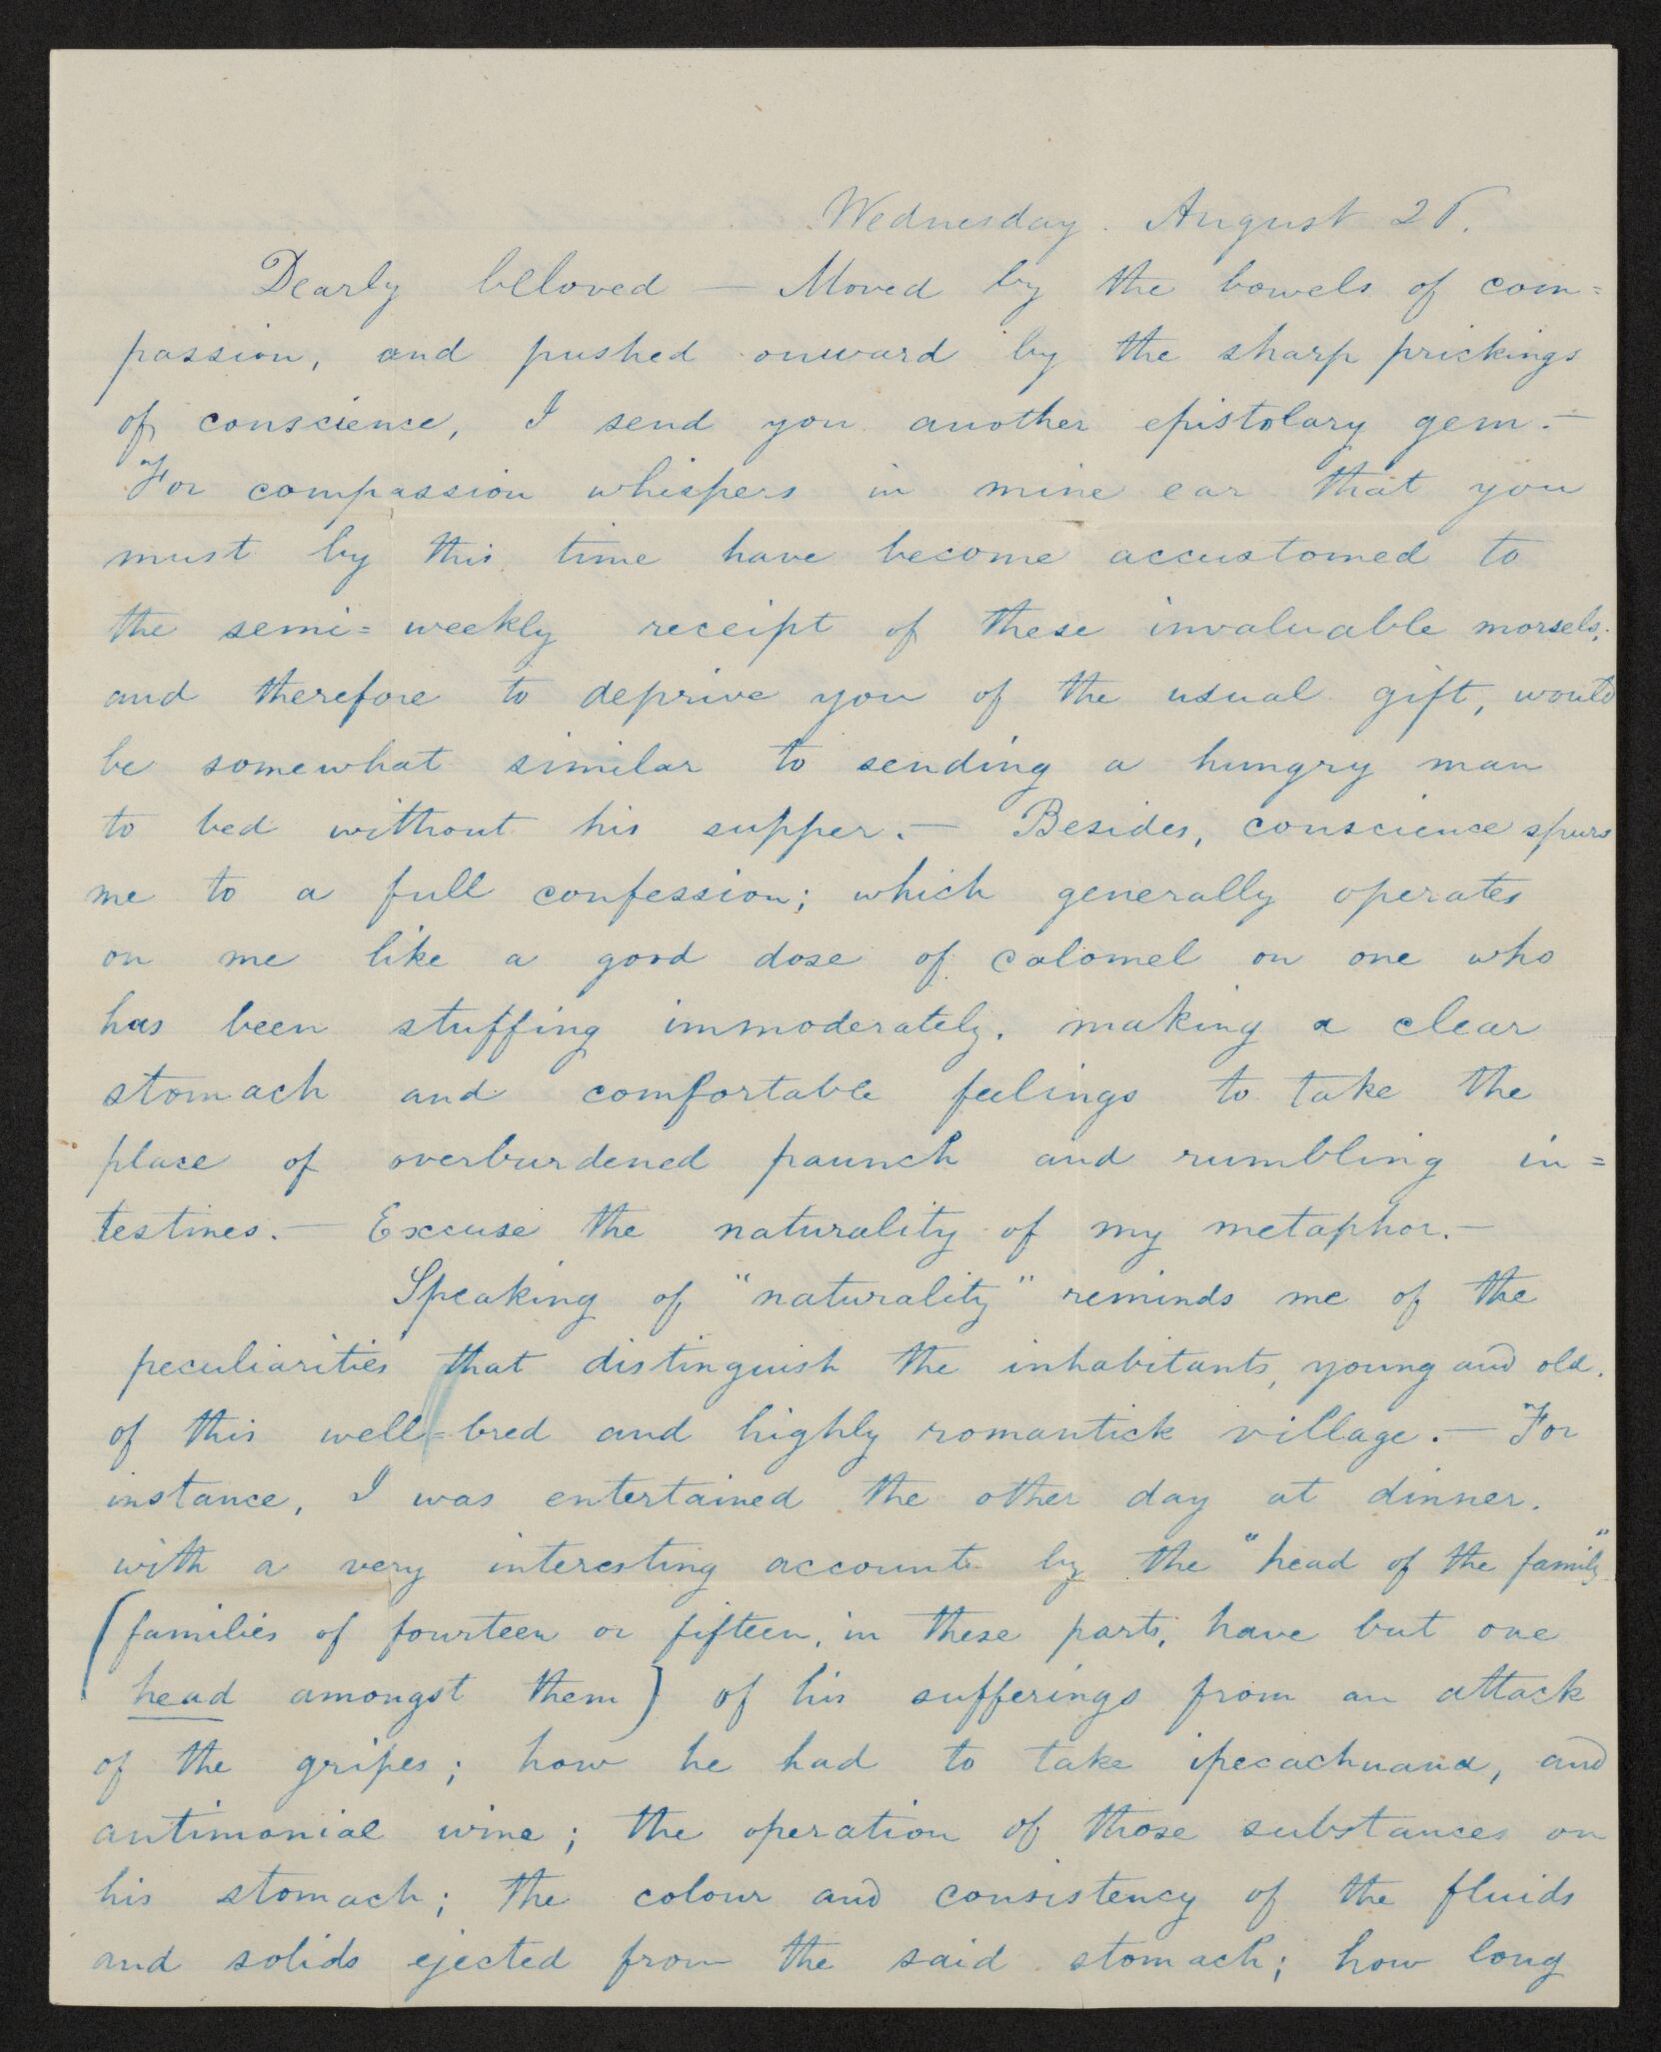 Wednesday. August
Dearly beloved — Moved by the bowels of com=
passion, and pushed onward by the sharp prickings
of conscience, I send you another epistolary gem.—
For compassion whispers in mine ear that you
must by this time have become accustomed to
the semi=weekly receipt of these invaluable morsels;
and therefore to deprive you of the usual gift, would
be somewhat similar to sending a hungry man
to bed without his supper.— Besides, conscience spurs
me to a full confession; which generally operates
on me like a good dose of calomel on one who
has been stuffing immoderately, making a clear
stomach and comfortable feelings to take the
place of overburdened paunch and rumbling in=
testines.— Excuse the naturality of my metaphor.—
Speaking of "naturality" reminds me of the
peculiarities that distinguish the inhabitants, young and old,
of this well=bred and highly romantick village.— For
instance, I was entertained the other day at dinner,
with a very interesting account by the "head of the family"
(families of fourteen or fifteen, in these parts, have but one
head amongst them) of his sufferings from an attack
of the gripes; how he had to take ipecachuana, and
antimonial wine; the operation of those substances on
his stomach; the colour and consistency of the fluids
and solids ejected from the said stomach; how long